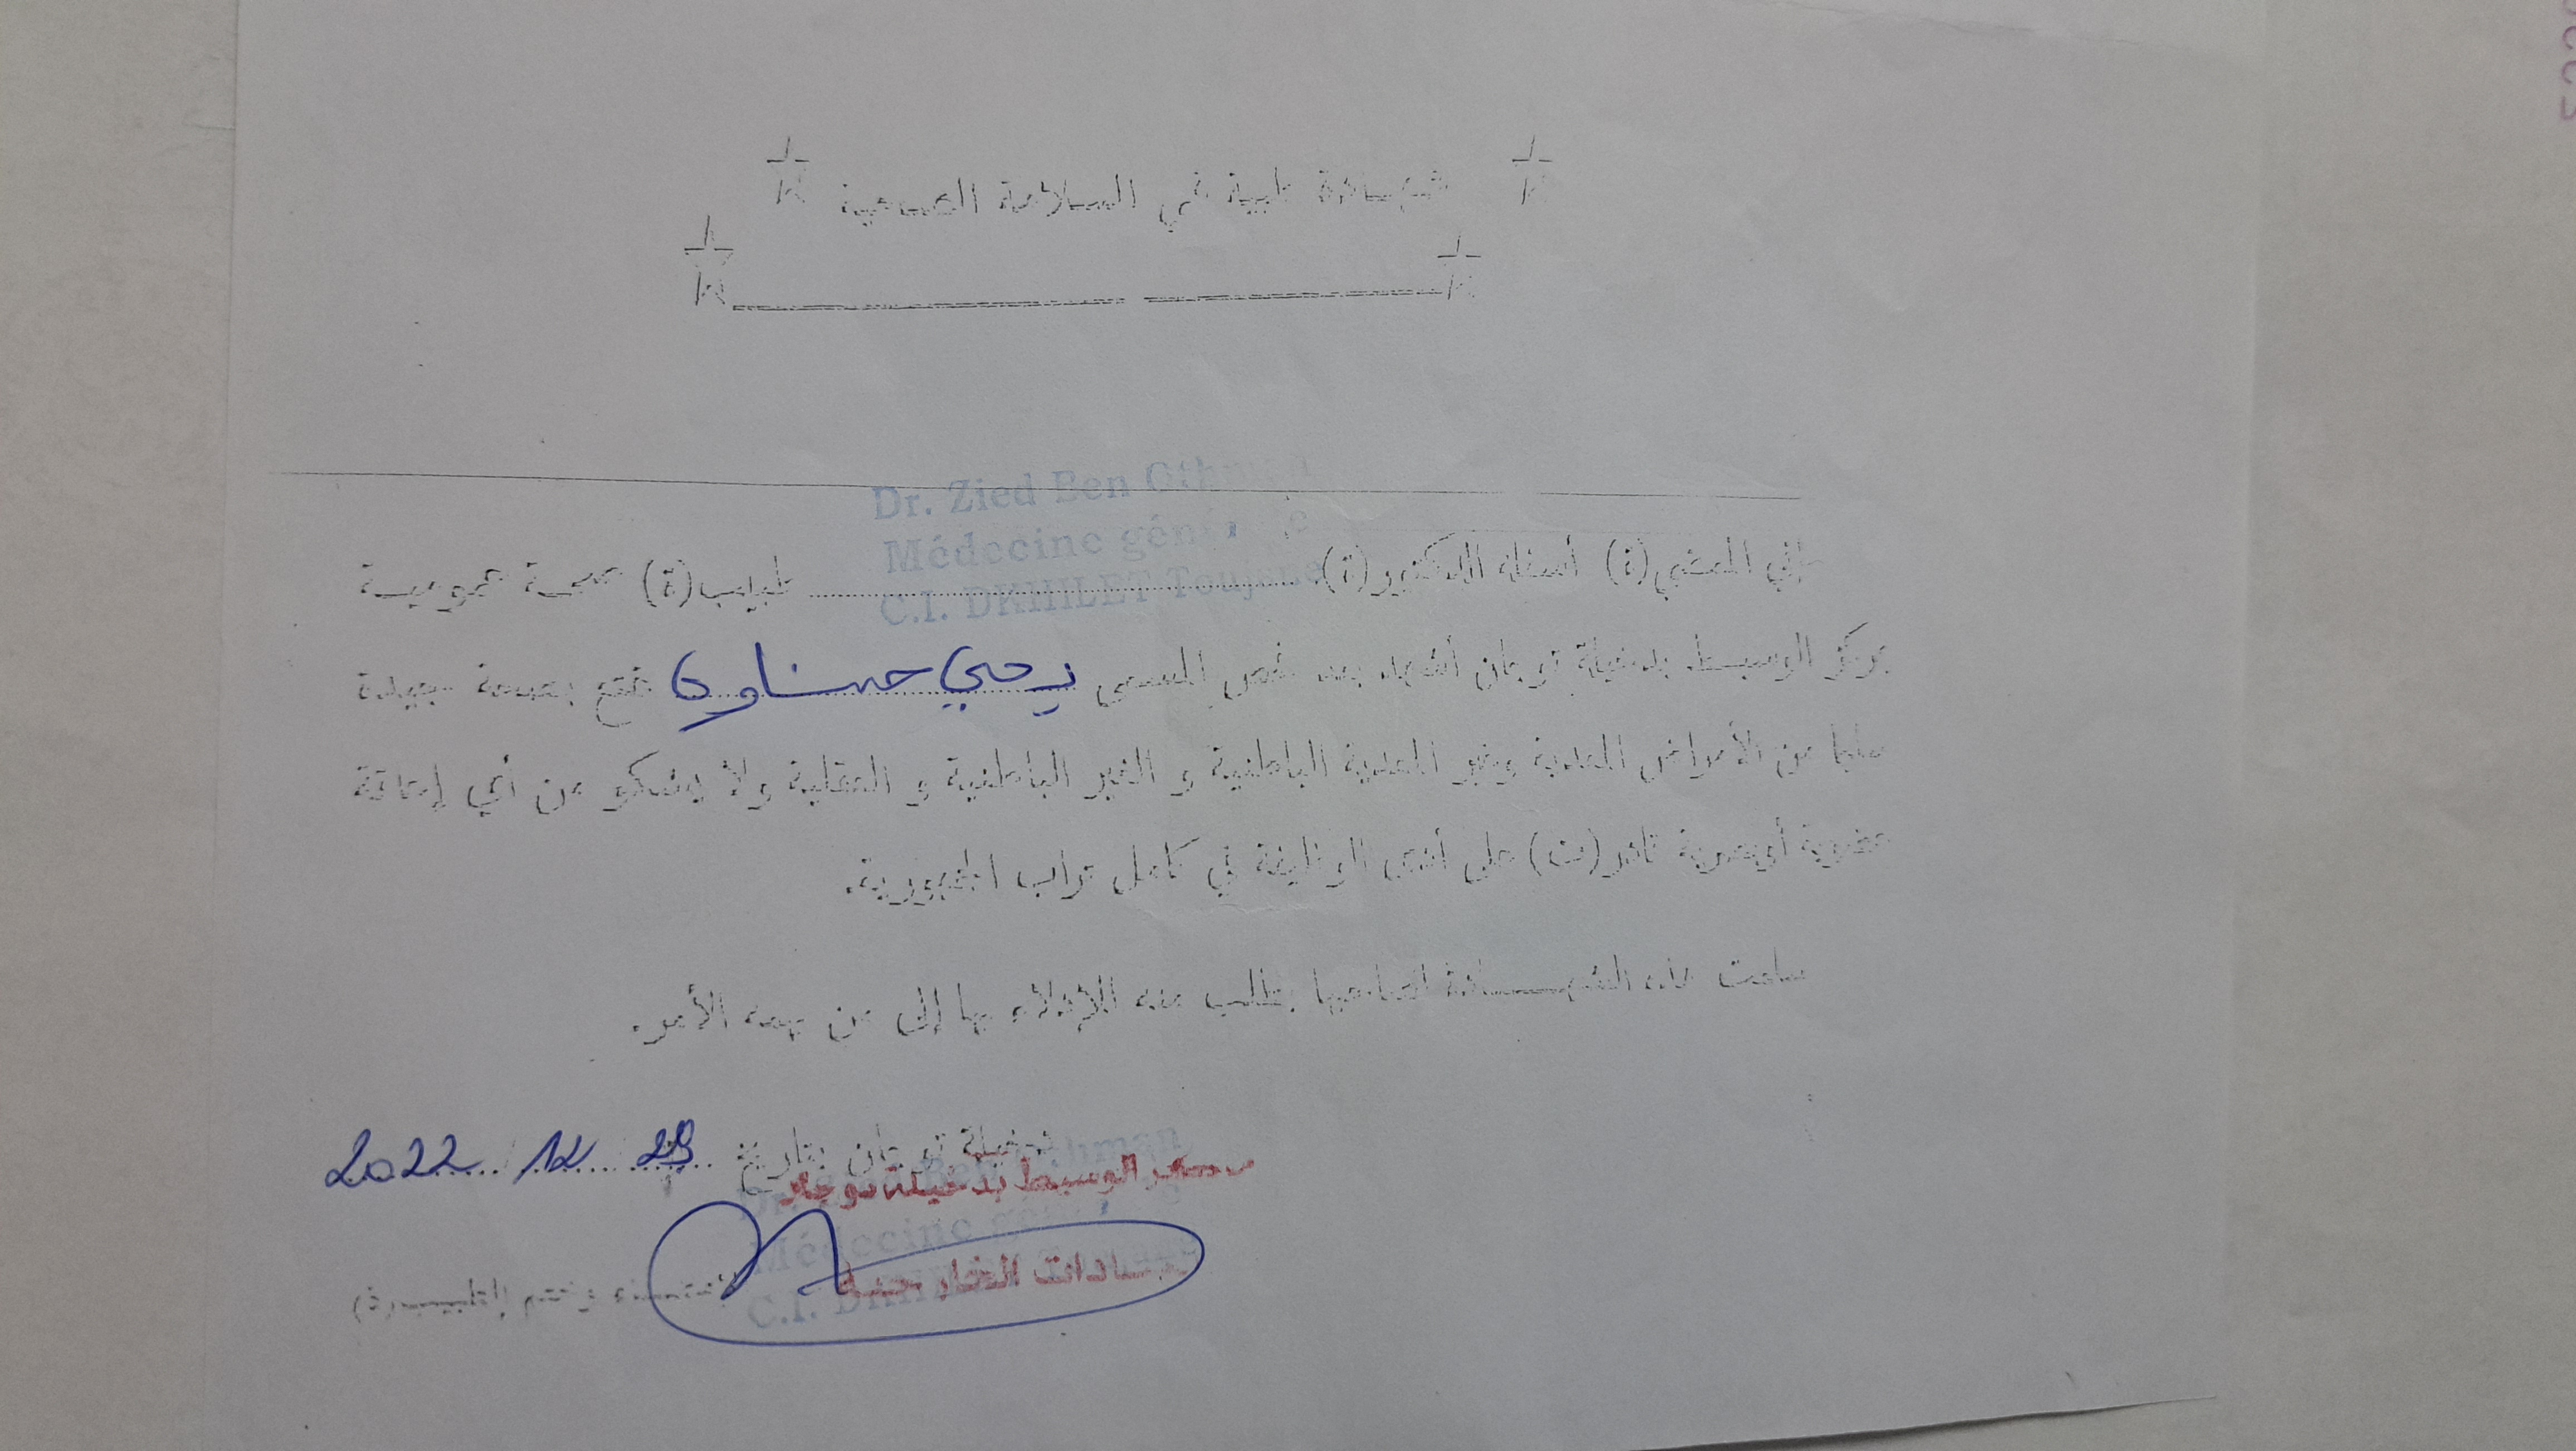 شهادة طبية في السلامة الصحية
Dr. Zied Ben Othman
Médecine générale
C.I. DKHILET Toujane
إني الممضي(ة) أسفله الدكتور(ة) طبيب(ة) صحة عمومية
بمركز الوسيط بدخيلة توجان أشهد بعد فحص المسمى يحي حسناوي يتمتع بصحة جيدة
سليما من الأمراض المعدية وغير المعدية الباطنية و الغير الباطنية و العقلية ولا يشكو من أي إعاقة
عضوية أوبصرية قادر(ت) على أدى الوظيفة في كامل تراب الجمهورية.
سلمت هذه الشهادة لصاحبها بطلب منه للإدلاء بها إلى من يهمه الأمر.
بدخيلة توجان بتاريخ 29 12 2022
الوسيط بدخيلة توجان
الخارجية
Médecine générale
إمضاء وختم الطبيب(ة)